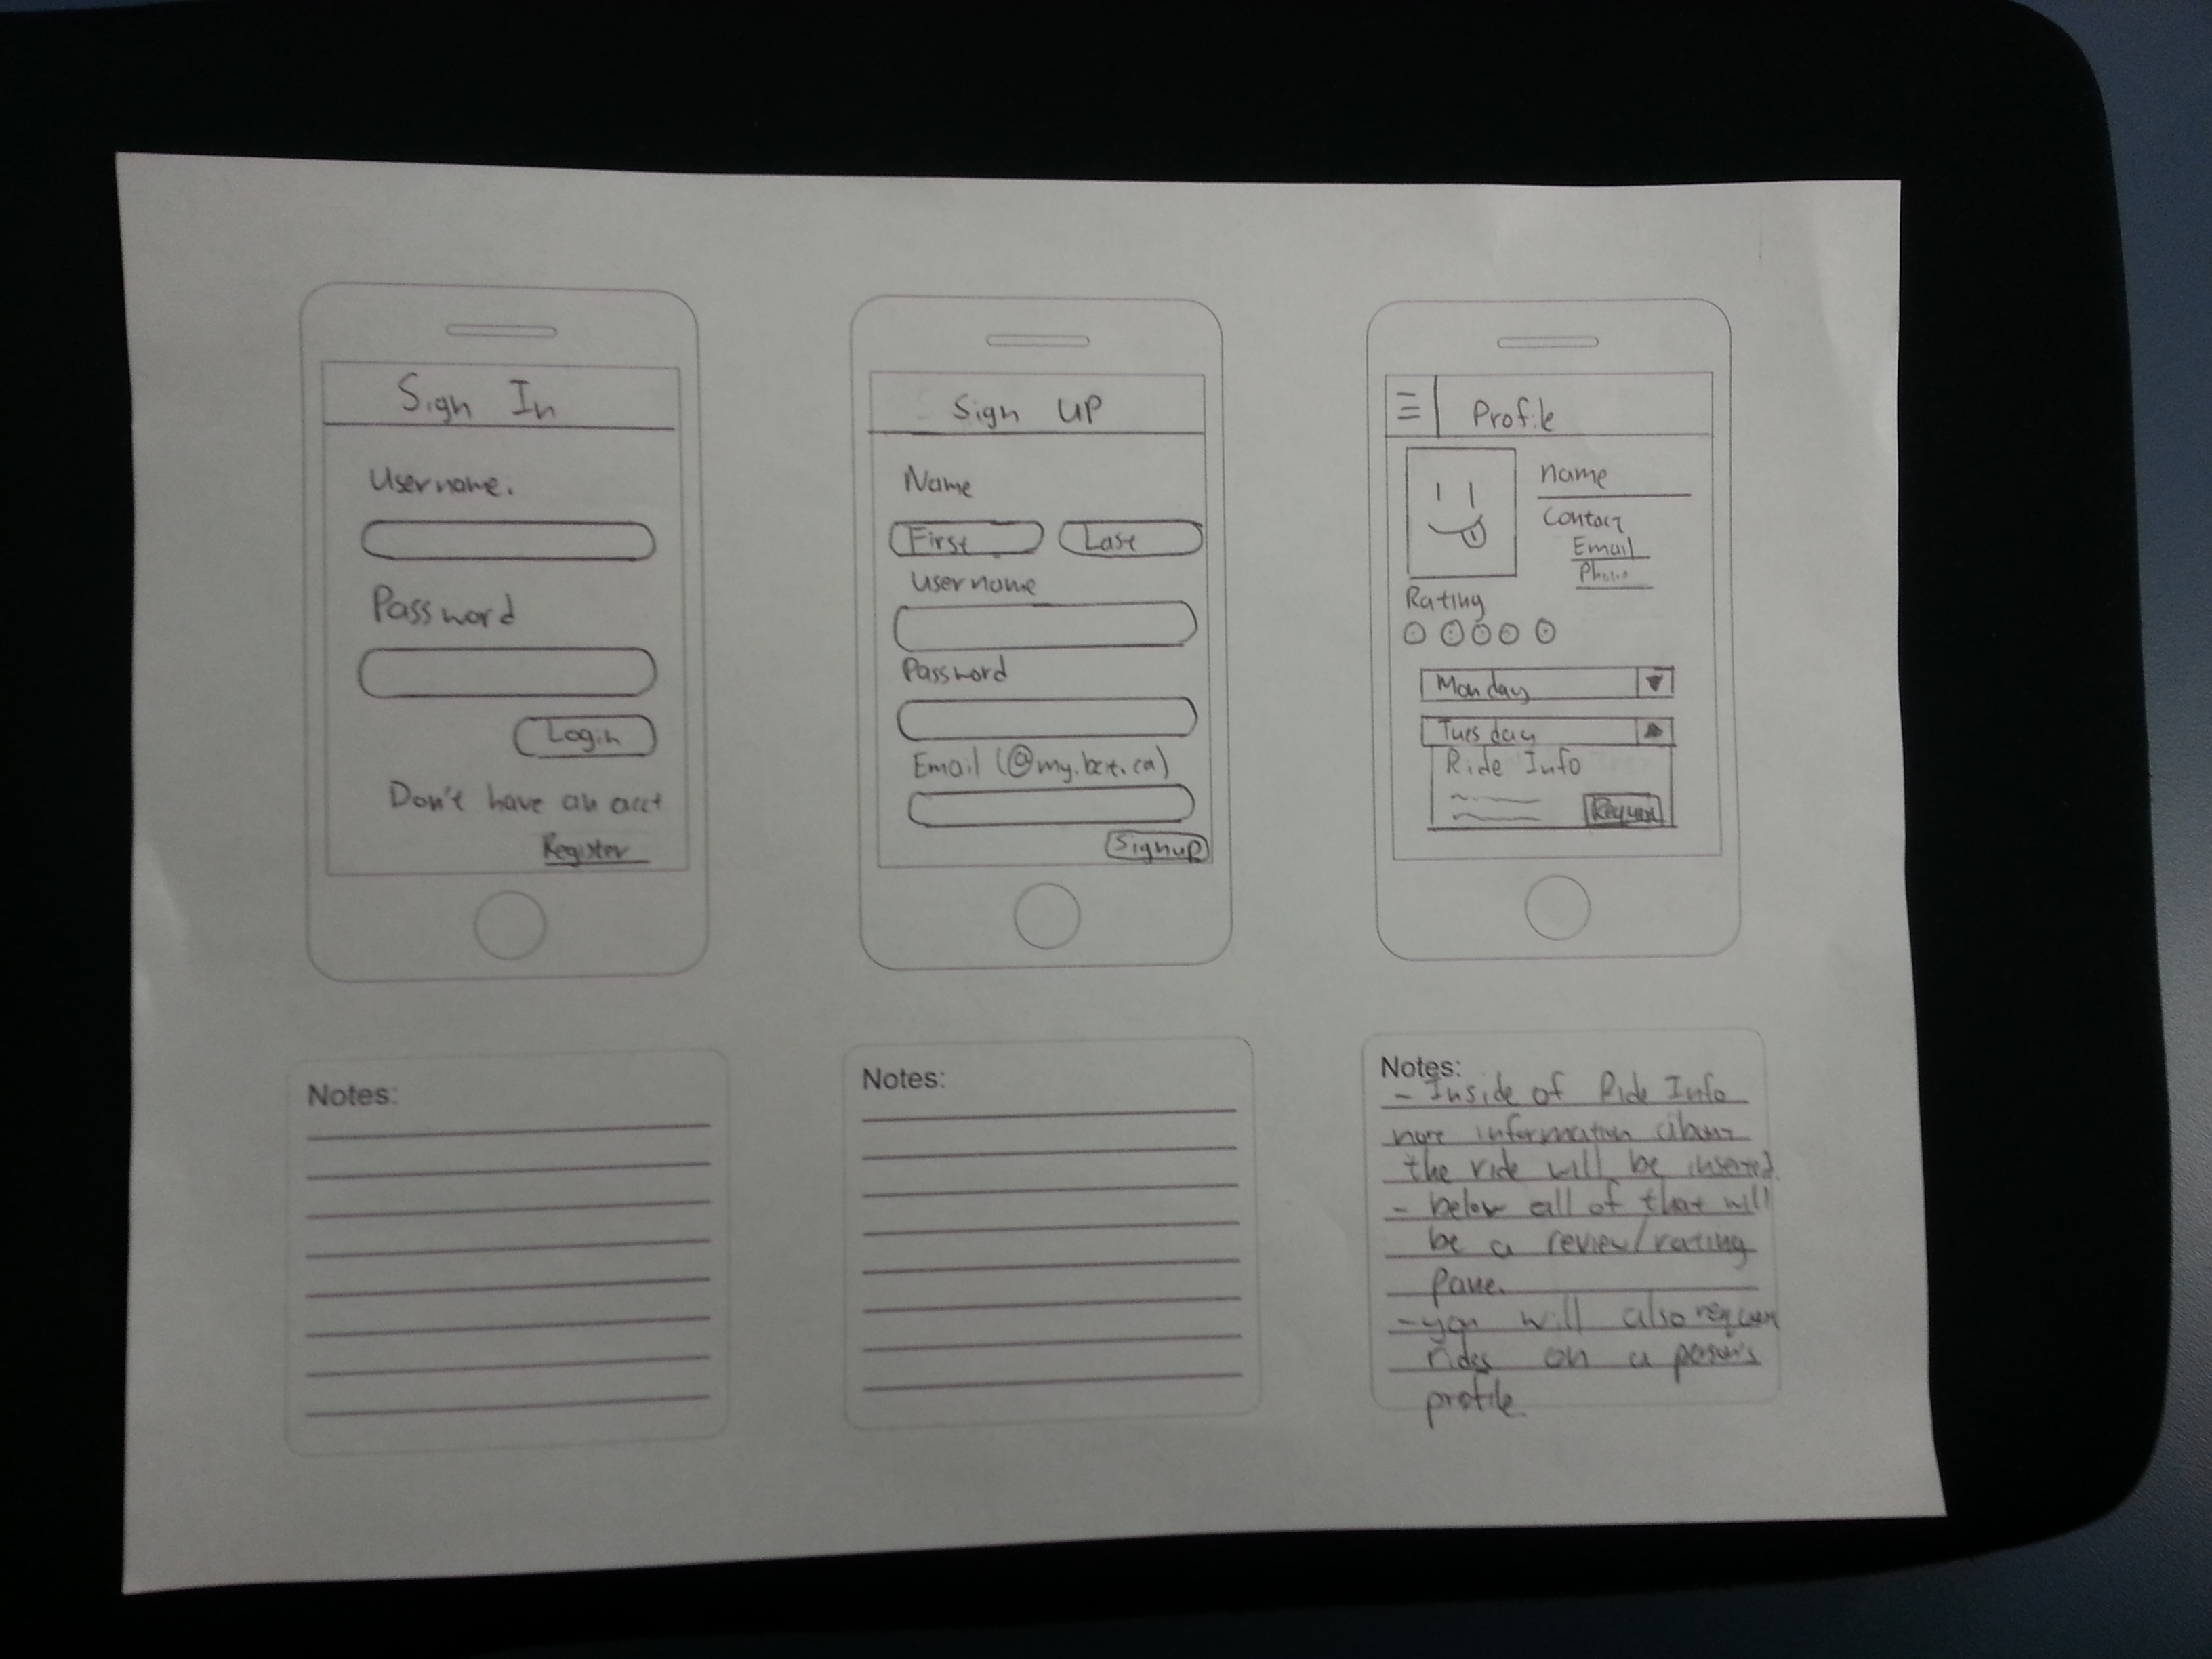 Sign In
Username.
Password
Login
Don't have an acct
Register
Sign UP
Name
First Last
Username
Password
Email (@my.bcit.ca)
Signup
Profile
name
Contact
Email
Phone
Rating
Monday
Tuesday
Ride Info
Request
Notes:
Notes:
Notes:
- Inside of Ride Info
more information about
the ride will be inserted
- below all of that will
be a review/rating
pane.
- you will also request
rides on a person's
profile.